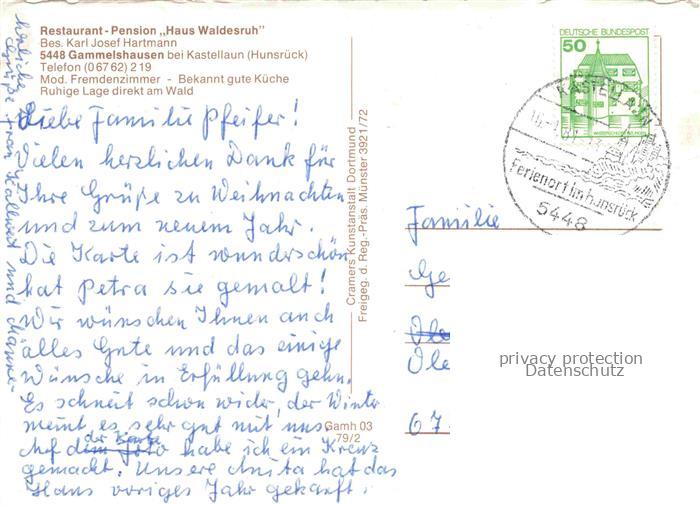 Restaurant - Pension „Haus Waldesruh"
Bes. Karl Josef Hartmann
5448 Gammelshausen bei Kastellaun (Hunsrück)
Telefon (0 67 62) 2 19
Mod. Fremdenzimmer - Bekannt gute Küche
Ruhige Lage direkt am Wald
Liebe Familie Pfeifer!
Vielen herzlichen Dank für
Ihre Grüße zu Weihnachten
und zum neuem Jahr.
Die Karte ist wunderschön
hat Petra sie gemalt!
Wir wünschen Ihnen auch
alles Gute und das einige
Wünsche in Erfüllung gehn.
Es schneit schon wider, der Winter
meint es sehr gut mit uns.
Auf der Karte habe ich ein Kreuz
gemacht. Unsere Anita hat das
Haus voriges Jahr gekauft.
herzliche
Grüße Frau Kallweit und Männe
Cramers Kunstanstalt Dortmund
Freigeg. d. Reg.-Präs. Münster 3921/72
Gamh 03
79/2
DEUTSCHE BUNDESPOST
50
KASTELLAUN
Ferienort im Hunsrück
5448
Familie
Ge
Ble
67
privacy protection
Datenschutz